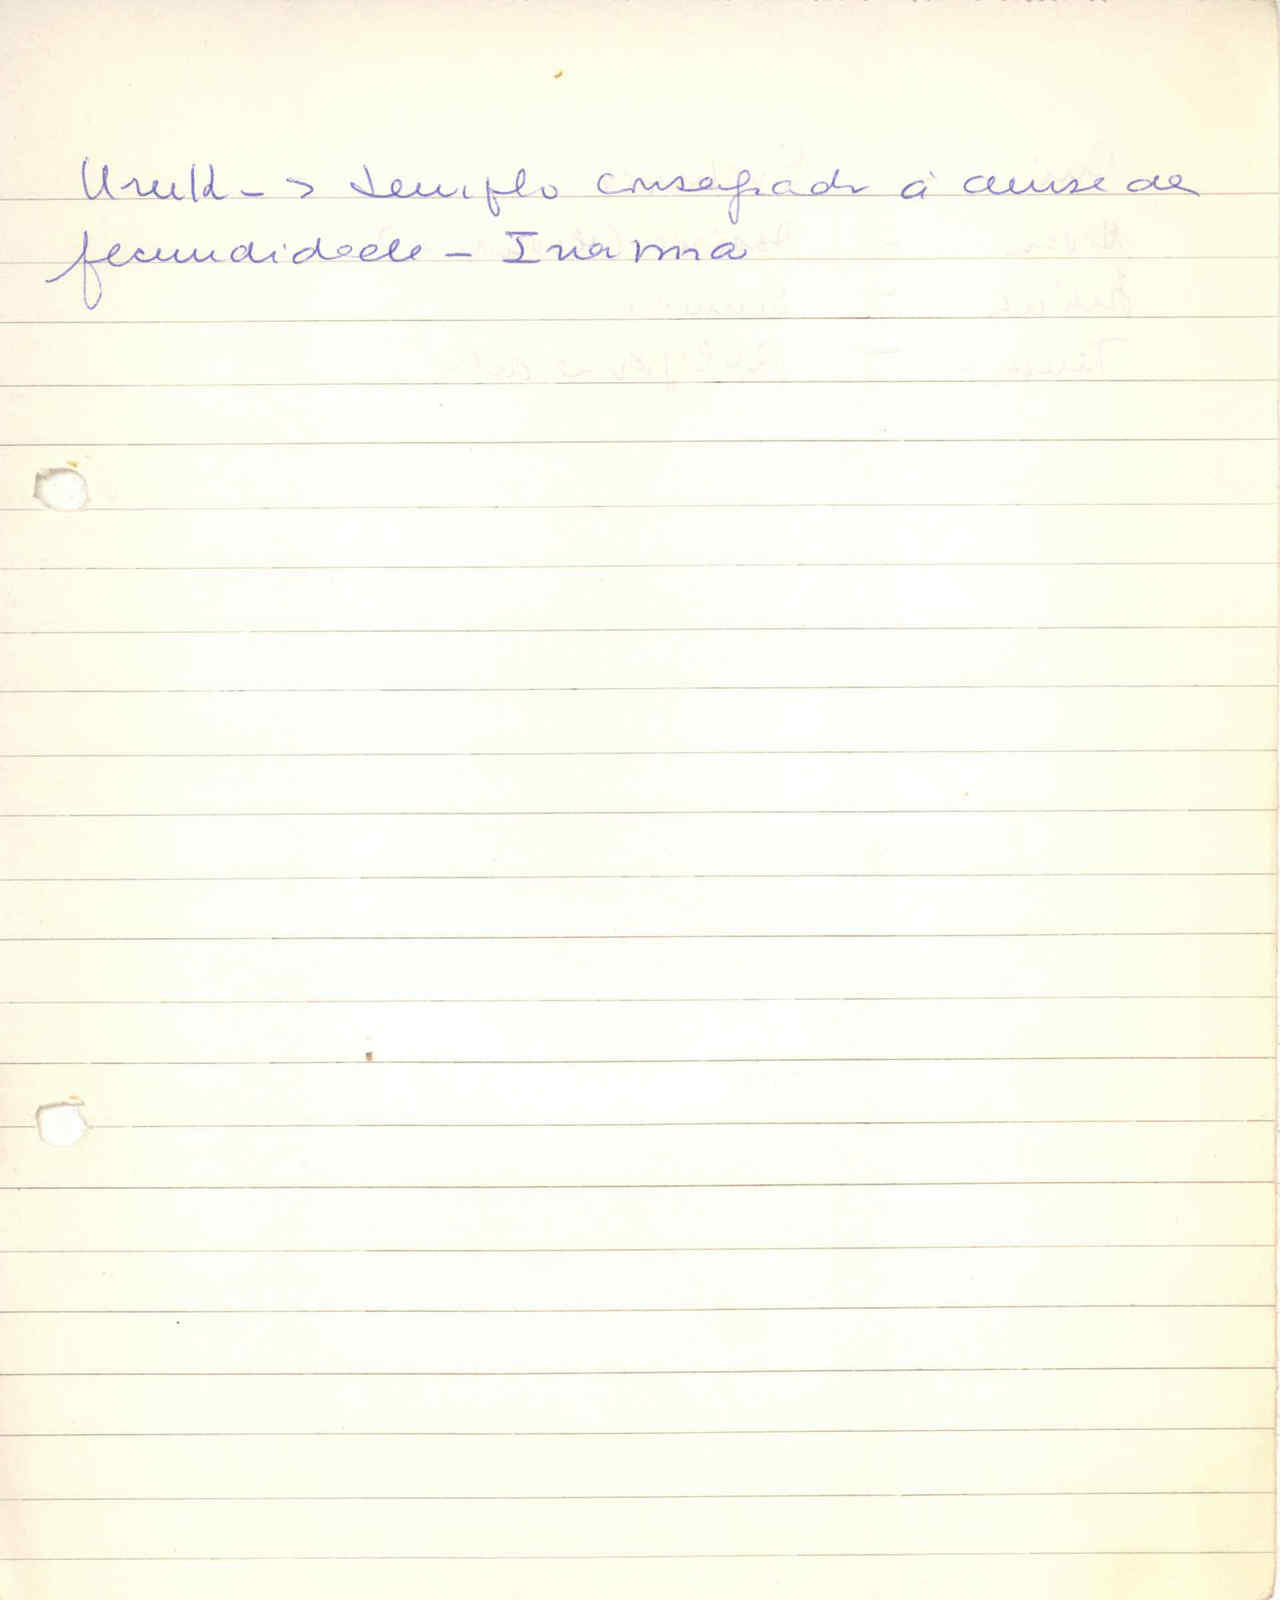 Uruk -> templo consagrado à deusa da
fecundidade - Inanna